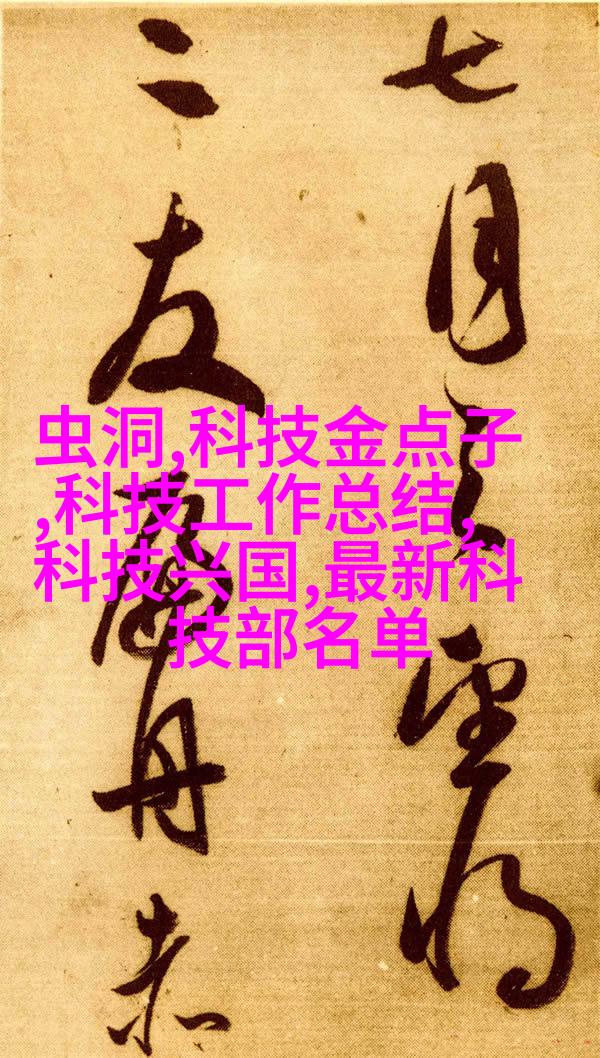 七月望
二友丹赤
虫洞,科技金点子
,科技工作总结,
科技兴国,最新科
技部名单